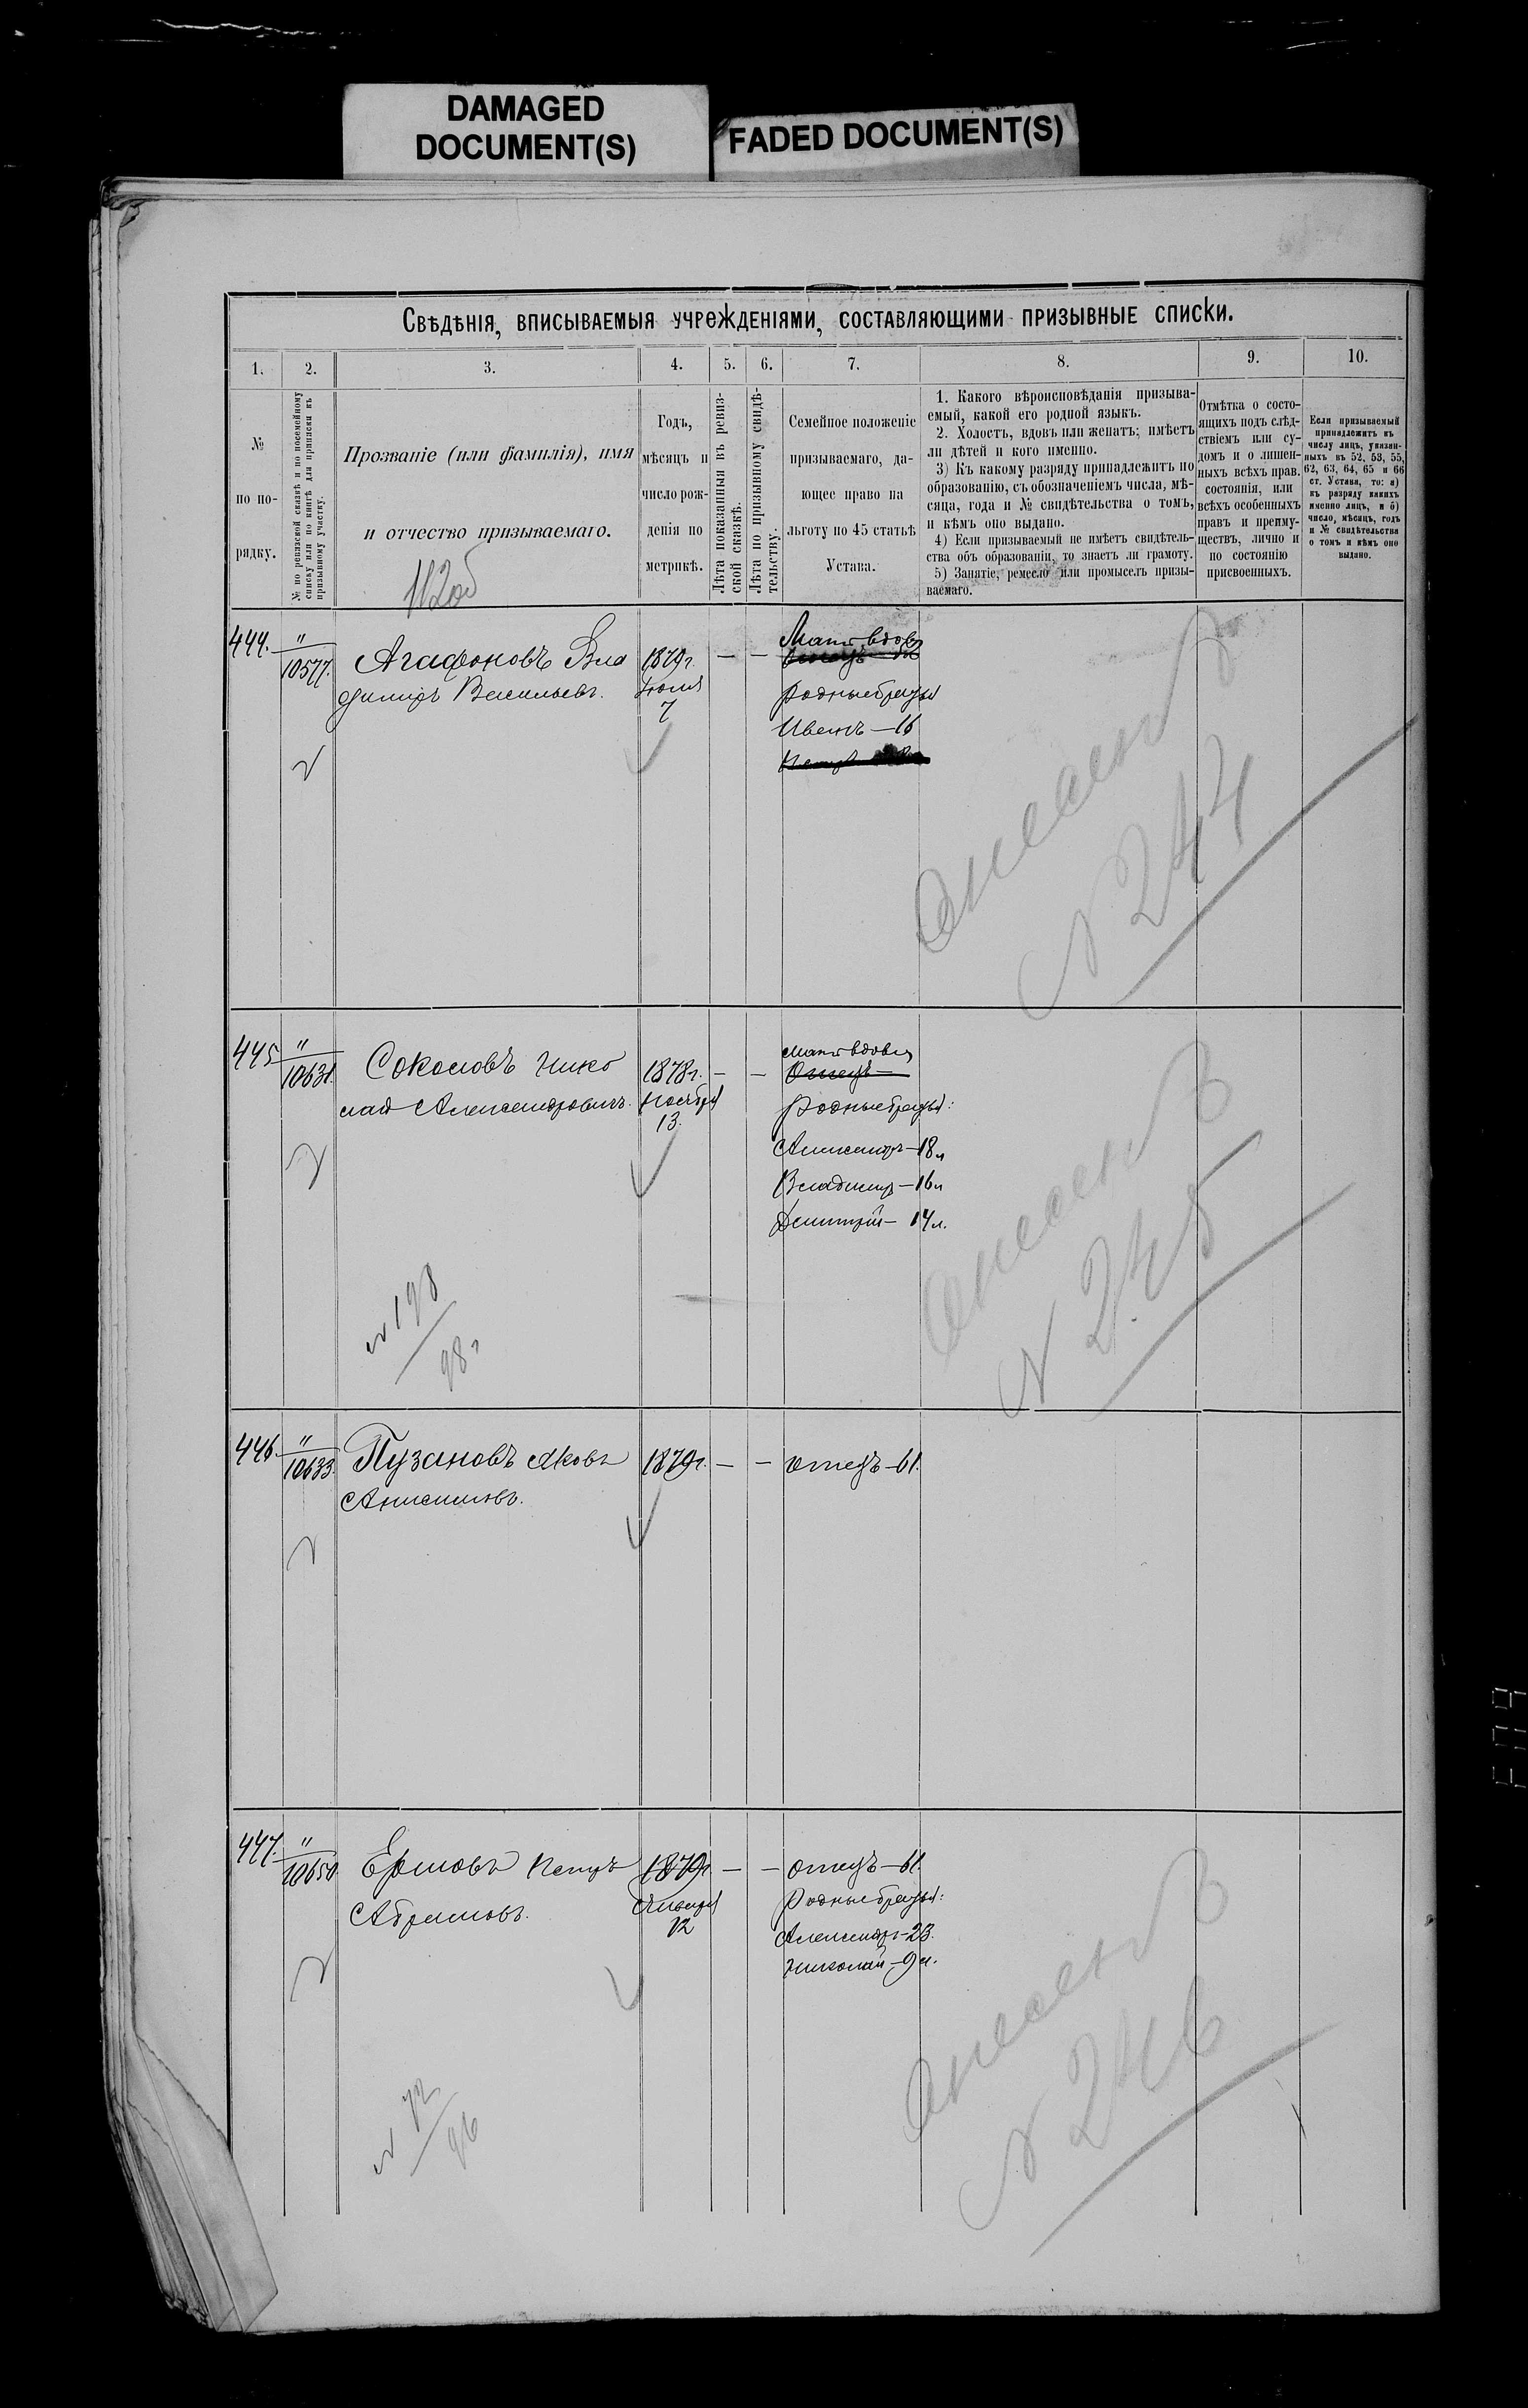 DAMAGED
DOCUMENT(S)
FADED DOCUMENT(S)
Свѣдѣнія, вписываемыя учрежденіями, составляющими призывные списки.
1.
2.
3.
4.
5.
6.
7.
8.
9.
10.
№
по по-
рядку.
№ по ревизской сказкѣ и по посемейному
списку или по книгѣ для приписки къ
призывному участку.
Прозваніе (или фамилія), имя
и отчество призываемаго.
Годъ,
мѣсяцъ и
число рож-
денія по
метрикѣ.
Лѣта показанныя въ ревиз-
ской сказкѣ.
Лѣта по призывному свидѣ-
тельству.
Семейное положеніе
призываемаго, да-
ющее право на
льготу по 45 статьѣ
Устава.
1. Какого вѣроисповѣданія призыва-
емый, какой его родной языкъ.
2. Холостъ, вдовъ или женатъ; имѣетъ
ли дѣтей и кого именно.
3) Къ какому разряду принадлежитъ по
образованію, съ обозначеніемъ числа, мѣ-
сяца, года и № свидѣтельства о томъ,
и кѣмъ оно выдано.
4) Если призываемый не имѣетъ свидѣтель-
ства объ образованіи, то знаетъ ли грамоту.
5) Занятіе, ремесло или промыселъ призы-
ваемаго.
Отмѣтка о состо-
ящихъ подъ слѣд-
ствіемъ или су-
домъ и о лишен-
ныхъ всѣхъ прав.
состоянія, или
всѣхъ особенныхъ
правъ и преиму-
ществъ, лично и
по состоянію
присвоенныхъ.
Если призываемый
принадлежитъ къ
числу лицъ, указан-
ныхъ въ 52, 53, 55,
62, 63, 64, 65 и 66
ст. Устава, то: а)
къ разряду какихъ
именно лицъ, и б)
число, мѣсяцъ, годъ
и № свидѣтельства
о томъ и кѣмъ оно
выдано.
444.
"
10577.
Агафоновъ Вла
димиръ Васильевъ.
1879г.
Іюля
7
— —
Мать вдова
Отецъ
Родные братья
Иванъ — 16
Петръ
Внесенъ
№ 244
445
"
10631.
Соколовъ Нико
лай Александровичъ.
1878г.
Ноября
13.
— —
Мать вдова
Отецъ —
Родные братья:
Александръ — 18л
Владимиръ — 16л
Дмитрій — 14л.
№ 198
98г
Внесенъ
№ 245
446.
"
10633.
Пузановъ Яковъ
Анисимовъ.
1879г.
— —
отецъ — 61.
447.
"
10650.
Ермовъ Петръ
Абрамовъ.
1879г.
Января
12
— —
отецъ — 61.
Родные братья:
Александръ — 23.
Николай — 9л.
№ 72
96
Внесенъ
№ 246